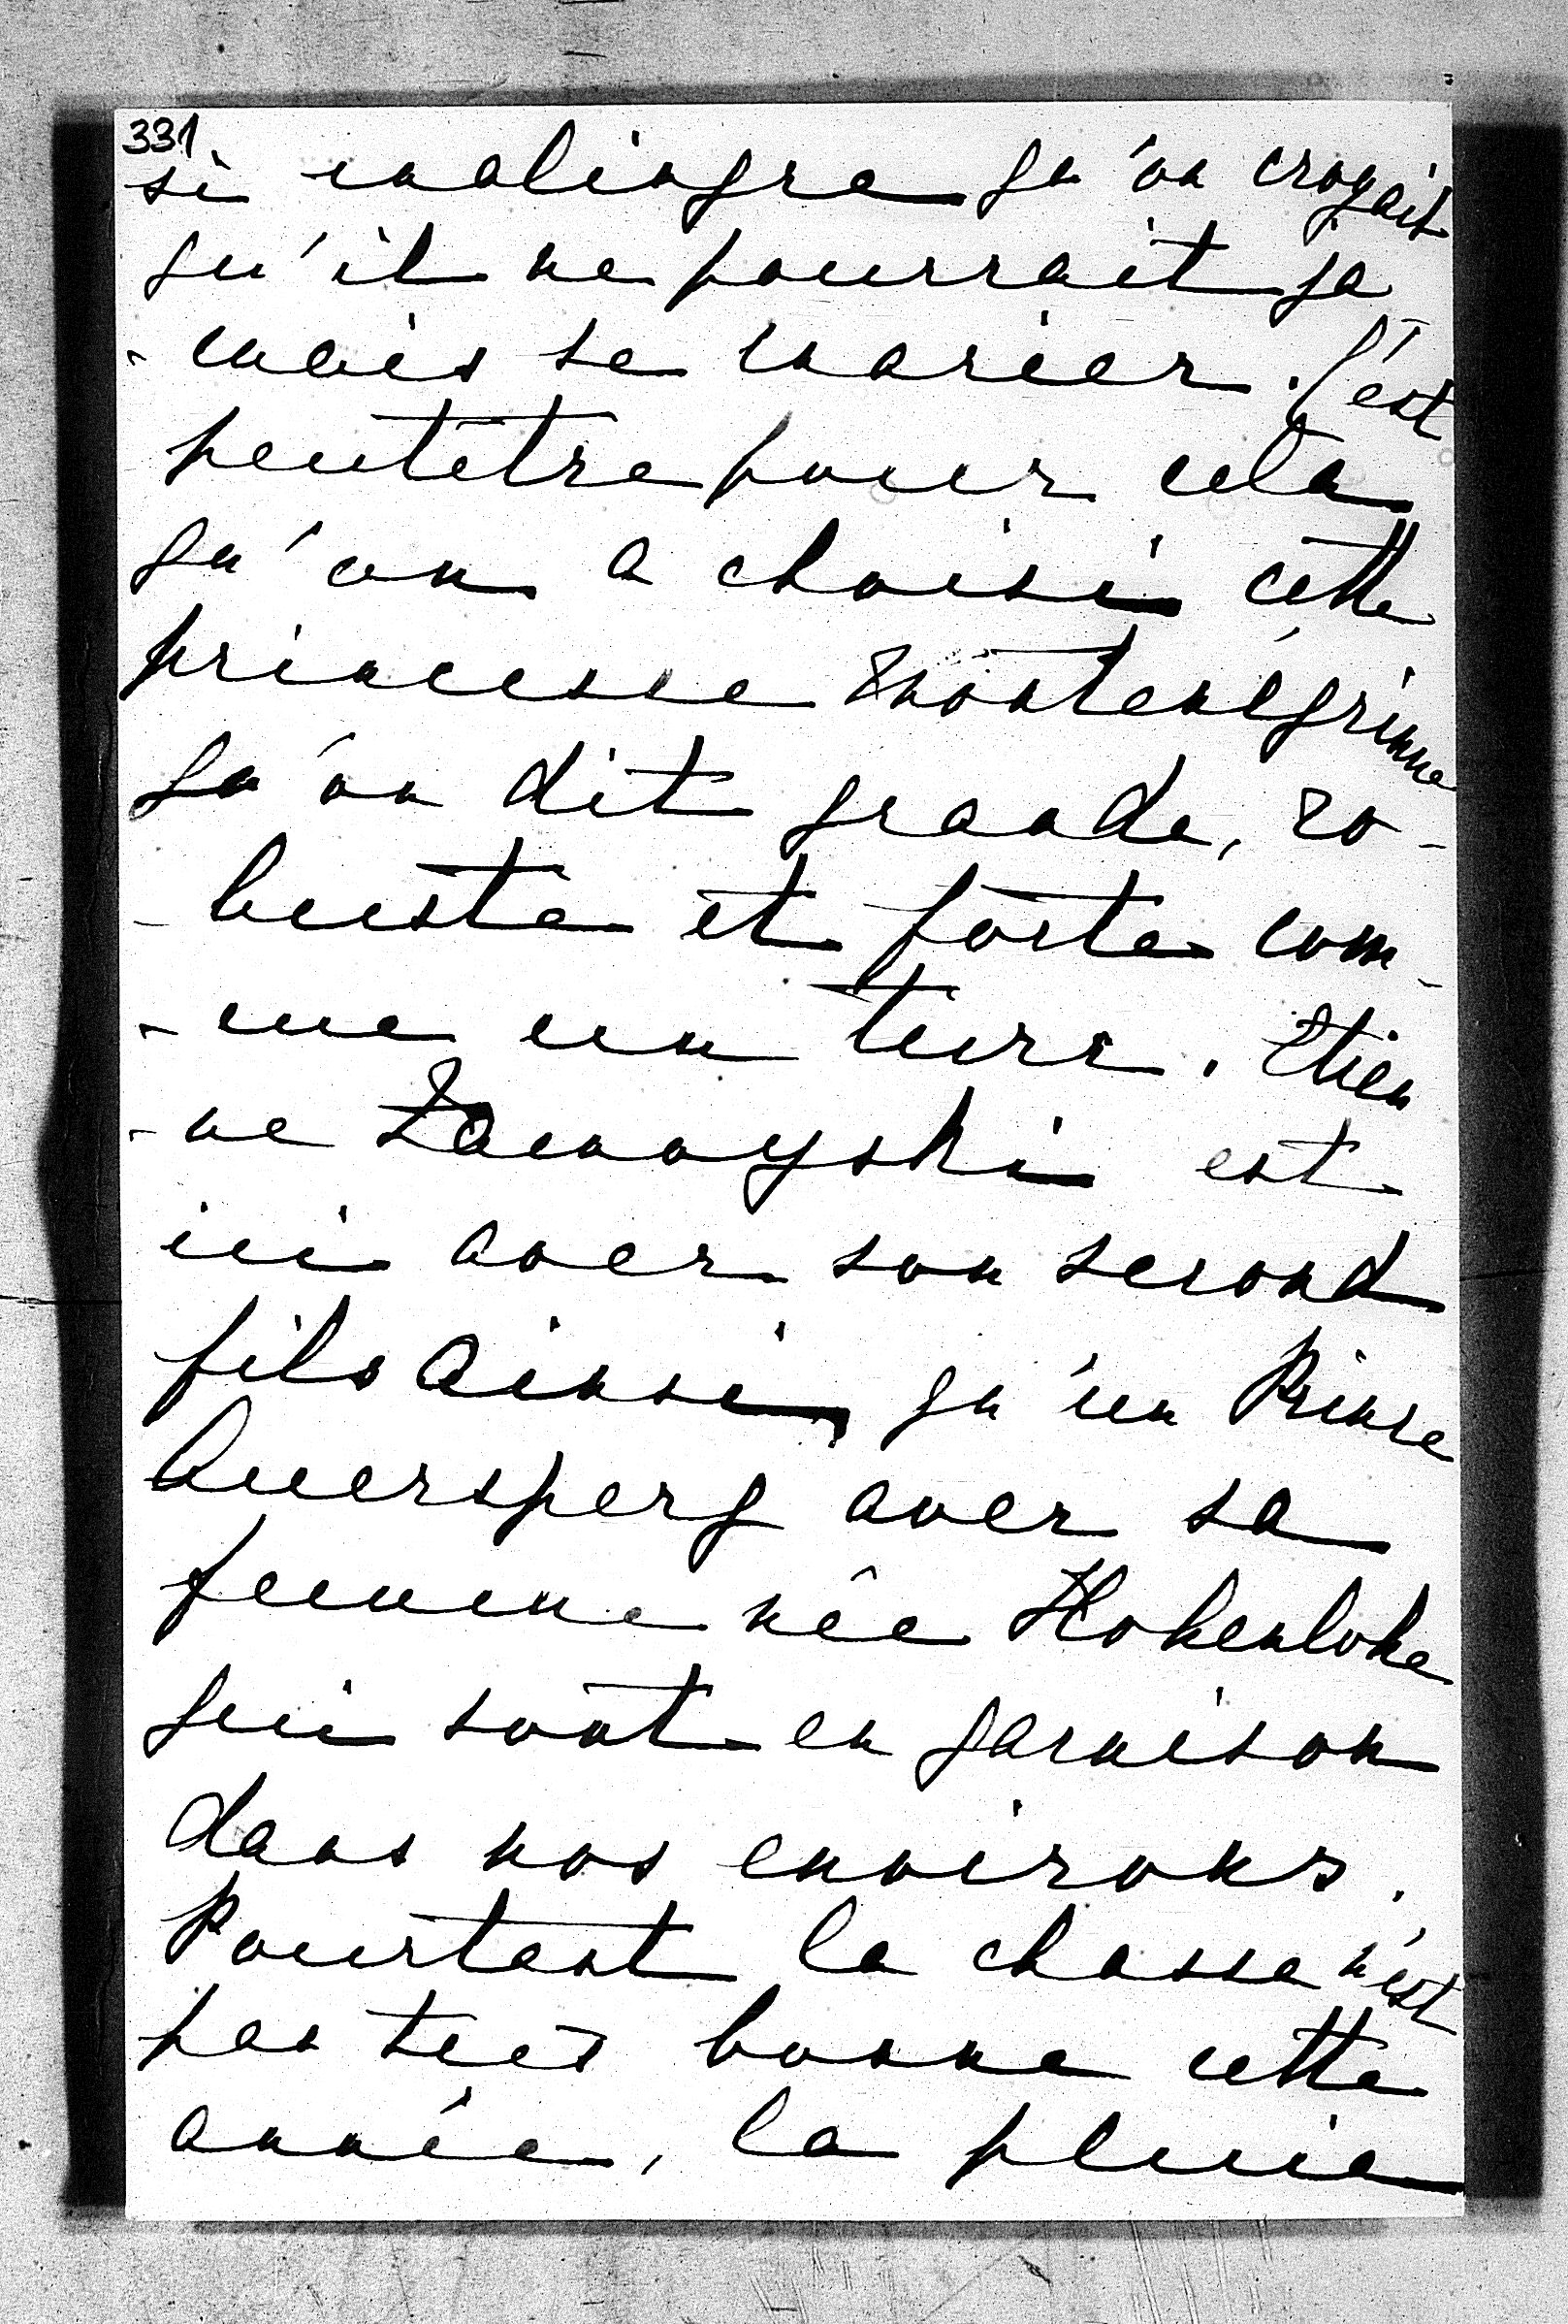 331
si malingre qu'on croyait
qu'il ne pourrait ja
-mais se marier. C'est
peutêtre pour cela
qu'on a choisi cette
princesse Monténégrinne
qu'on dit grande, ro-
-buste et forte com-
-me un turc. Etien
-ne Zamoyski est
ici avec son second
fils ainsi, qu'un Prince
Auersperg avec sa
femme née Hohenlohe
qui sont en garnison
dans nos environs.
Pourtant la chasse n'est
pas très bonne cette
année, la pluie